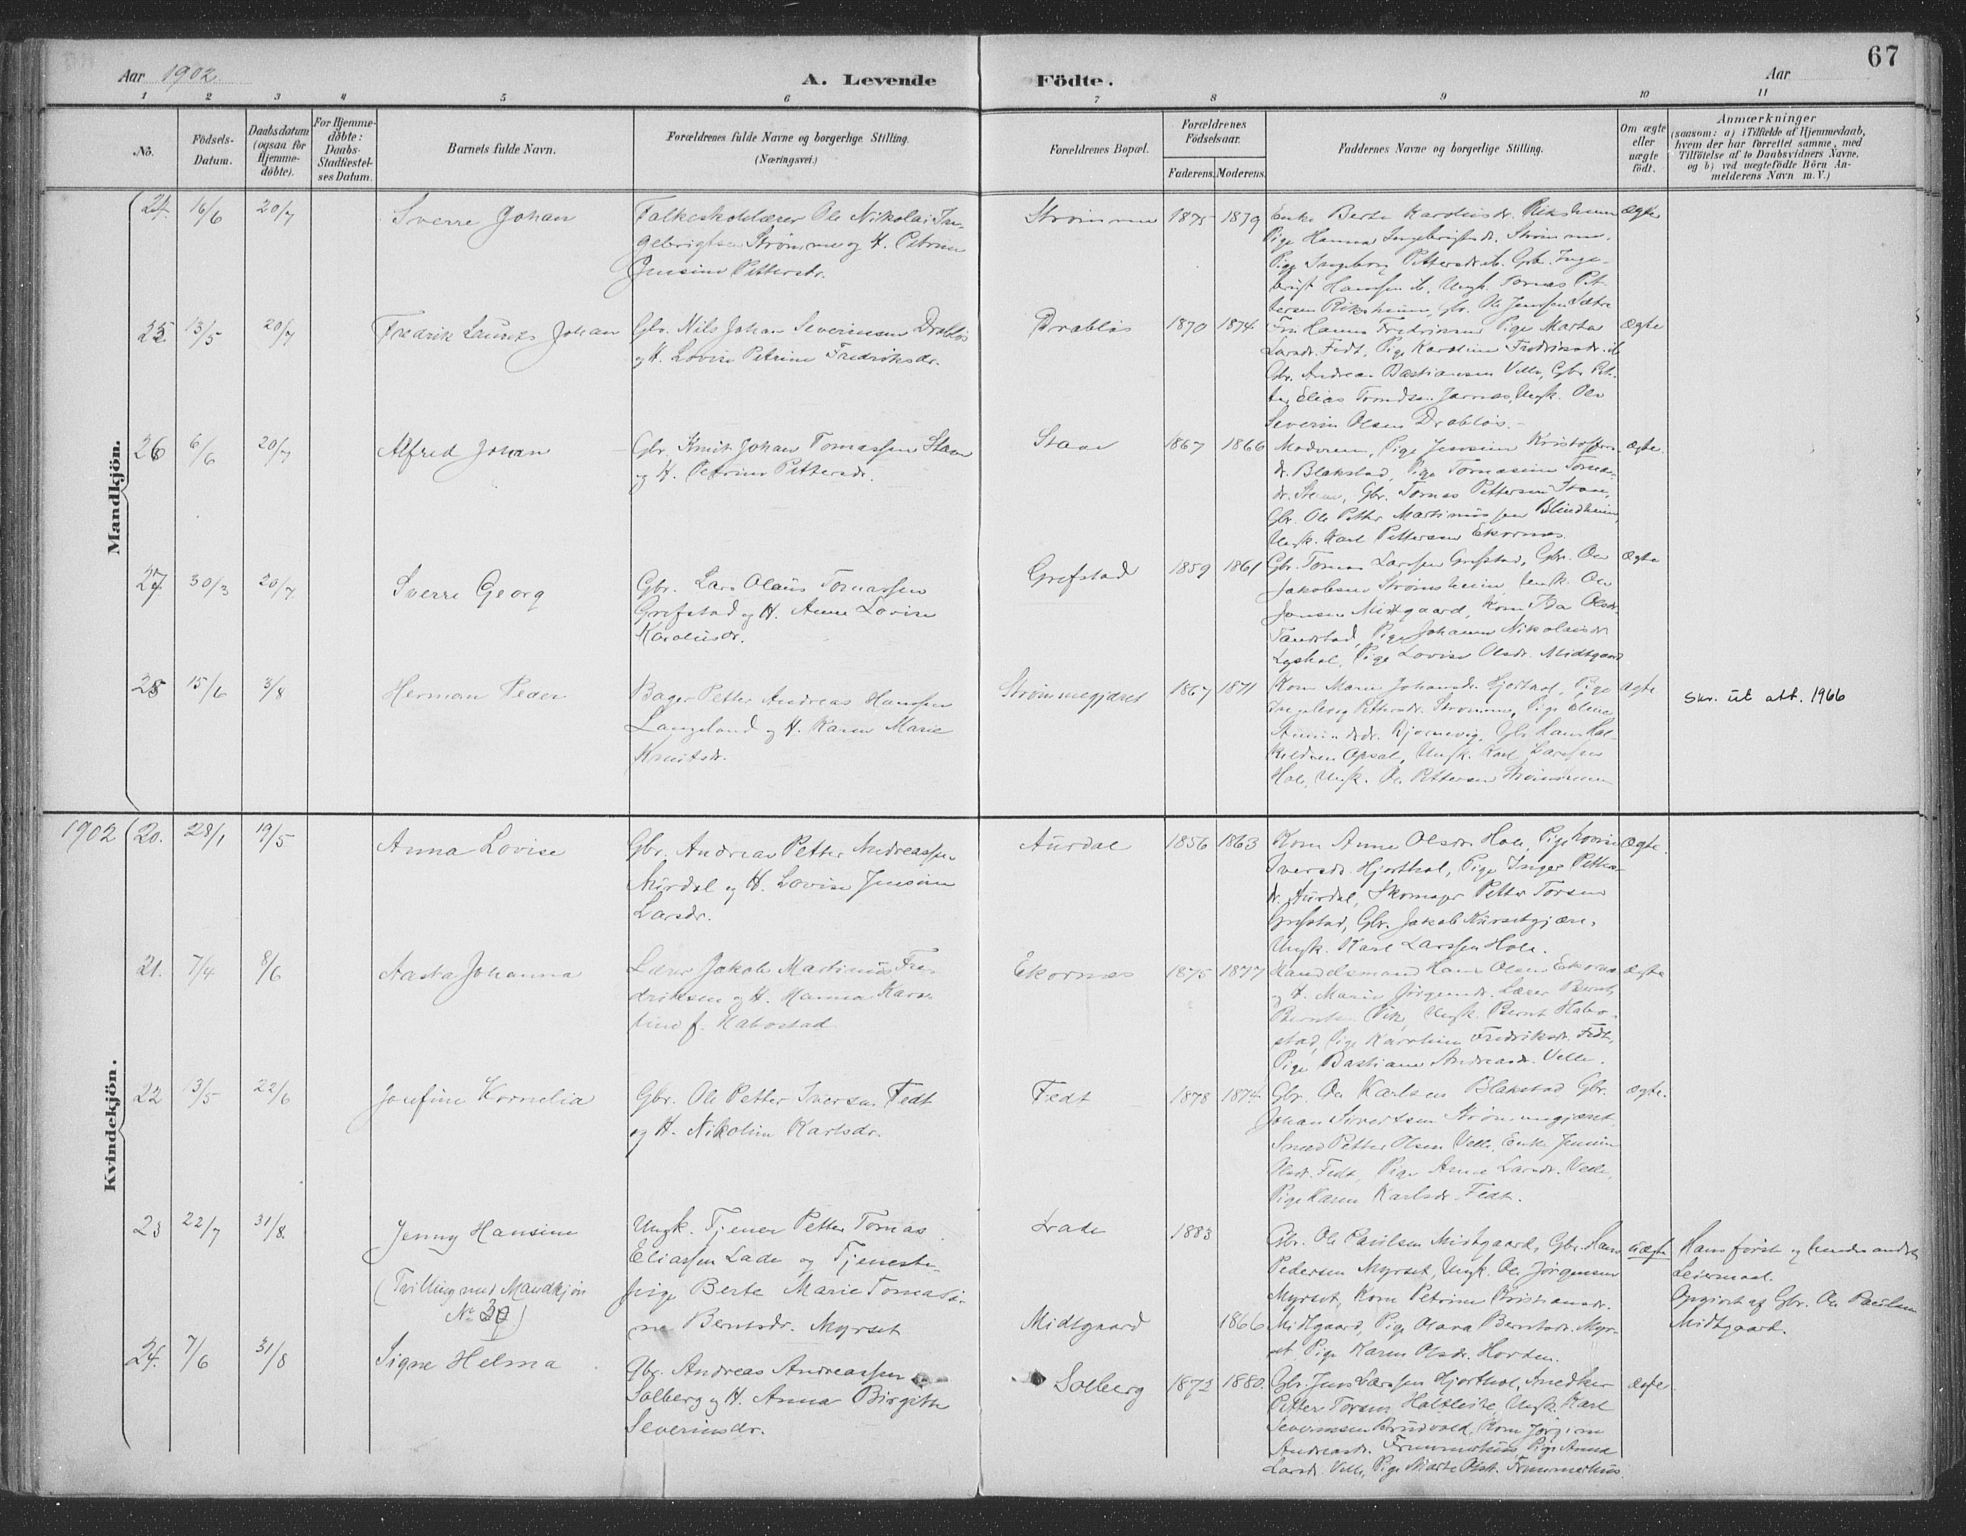 67
Aar 1902.
A. Levende Födte.
Aar
1 2 3 4 5 6 7 8 9 10 11
No.
Födsels-Datum.
Daabsdatum (ogsaa for Hjemme-døbte).
For Hjemme-døbte: Daabs-Stadfæstel-ses Datum.
Barnets fulde Navn.
Forældrenes fulde Navne og borgerlige Stilling. (Næringsvei.)
Forældrenes Bopæl.
Forældrenes Födselsaar.
Faderens. Moderens.
Faddernes Navne og borgerlige Stilling.
Om ægte eller uægte födt.
Anmærkninger
(saasom: a) i Tilfælde af Hjemmedaab,
hvem der har forrettet samme, med
Tilföielse af to Daabsvidners Navne,
og b) ved uægtefödte Börn An-
melderens Navn m. V.)
Mandkjön.
24. 16/6 20/7 Sverre Johan
Ole Nikolai In-
gebrigtsen Strømme og H. Petrine
Jensine Pettersdr.
Strømme 1875 1879
Enke Berte Karolusdr. Riksheim ægte
Pige Hanna Ingebrigtsdr. Strømme,
Pige Ingeborg Pettersdr. ib. Gbr. Inge-
brigt Hanssen ib. Ungk. Tomas Pet-
tersen Riksheim, Gbr. Ole Jenssen Sætre
25. 13/5 20/7 Fredrik Laurits Johan
Gbr. Nils Johan Severinsen Drabløs
og H. Lovise Petrine Fredriksdr.
Drabløs 1870 1874
Pige Marta ægte
Larsdr. Fedt, Pige Karoline Fredriksdr. ib
Gbr. Andreas Bastiansen Velle, Gbr. Pet-
ter Elias Ungk. Ole
Severin Olsen Drabløs.
26 6/6 20/7 Alfred Johan
Gbr. Knut Johan Tomassen Staen
og H. Petrine Pettersdr.
Staen 1867 1866
Moderen, Pige Jensine Kristoffers- ægte.
dr. Blakstad, Pige Tomasine Tomas-
dr. Staen, Gbr. Tomas Pettersen
Gbr. Ole Petter Martinussen Blindheim,
Ungk. Karl Pettersen Ekornes.
27 30/3 20/7 Sverre Georg
Gbr. Lars Olaus Tomassen
Grefstad og H. Anne Lovise
Karolusdr.
Grefstad 1859 1861
Gbr. Tomas Larssen Grefstad, Gbr. Ole ægte
Jakobsen Strømsheim, Ungk. Ole
Jonsen Midtgaard, Kone Ida Olsdr.
Tandstad, Pige Johanne Nikolaisdr.
Pige Lovise Olsdr. Midtgaard
28 15/6 3/8 Herman Peder
Bager Petter Andreas Hanssen
Langeland og H. Karen Marie
Knutsdr.
Strømmegjæret 1867 1871
Kone Marie Johansdr. Hjorthol, Pige ægte
Ingeborg Pettersdr. Strømme, Pige Elene
Gbr. Hans
Opsal, Ungk. Karl Larssen
Hole, Ungk. Ole Pettersen Strømme
Skr. ut att. 1966
Kvindekjön.
1902 20. 28/1 19/5 Anna Lovise
Gbr. Andreas Petter Andreassen
Aurdal og H. Lovise Jensine
Larsdr.
Aurdal 1856 1863
Kone Anne Olsdr. Hole, Pige Lovise ægte.
Iversdr. Hjorthol, Pige Inger Petters-
dr. Aurdal, Skomager Petter Torsen
Grefstad, Gbr. Jakob
Ungk. Karl Larssen Hole.
21. 7/4 8/6 Aasta Johanna
Lærer Jakob Martinus Fre-
driksen og H. Hanna Kars-
tine f. Habostad
Ekornes 1875 1877
Handelsmand Hans Olsen Ekornes ægte
og H. Marie Jørgensdr. Lærer Bernt
Berntsen Vik, Ungk. Bernt Habo-
stad, Pige Karoline Fredriksdr. Fedt,
Pige Bastiane Andreasdr. Velle.
22 3/5 22/6 Josefine Kornelia
Gbr. Ole Petter Iversen Fedt
og H. Nikoline Karlsdr.
Fedt 1878 1874
Gbr. Ole Karlsen Blakstad Gbr. ægte.
Johan Sivertsen Strømmegjæret,
Smed Petter Olsen Velle, Enke Jensine
Olsdr. Fedt, Pige Anne Larsdr. Velle,
Pige Karen Karlsdr. Fedt.
23 22/7 31/8. Jenny Hansine
(Tvilling med Mandkjøn
No 30)
Ungk. Tjener Petter Tomas
Eliassen Lade og Tjeneste-
pige Berte Marie Tomasi-
ne Berntsdr. Myrset
Lade 1883
Midtgaard 1866
Gbr. Ole Paulsen Midtgaard, Gbr. Hans uægte
Pedersen Myrset, Ungk. Ole Jørgensen
Myrset, Kone Petrine Kristiansdr.
Midtgaard, Pige Olava Berntsdr. Myr-
set, Pige Karen Olsdr. Horten.
Hans første og hendes andet
Leiermaal.
Opgivet af Gbr. Ole Paulsen
Midtgaard.
24. 7/6 31/8 Signe Helma
Gbr. Andreas Andreassen
Solberg og H. Anna Birgitte
Severinsdr.
Solberg 1872 1880.
Gbr. Jens Larssen Hjorthol, Snedker ægte
Petter Torsen Ungk. Karl
Severinssen Brudvold, Kone Jørgine
Andreasdr. Pige Anna
Larsdr. Velle, Pige Marte